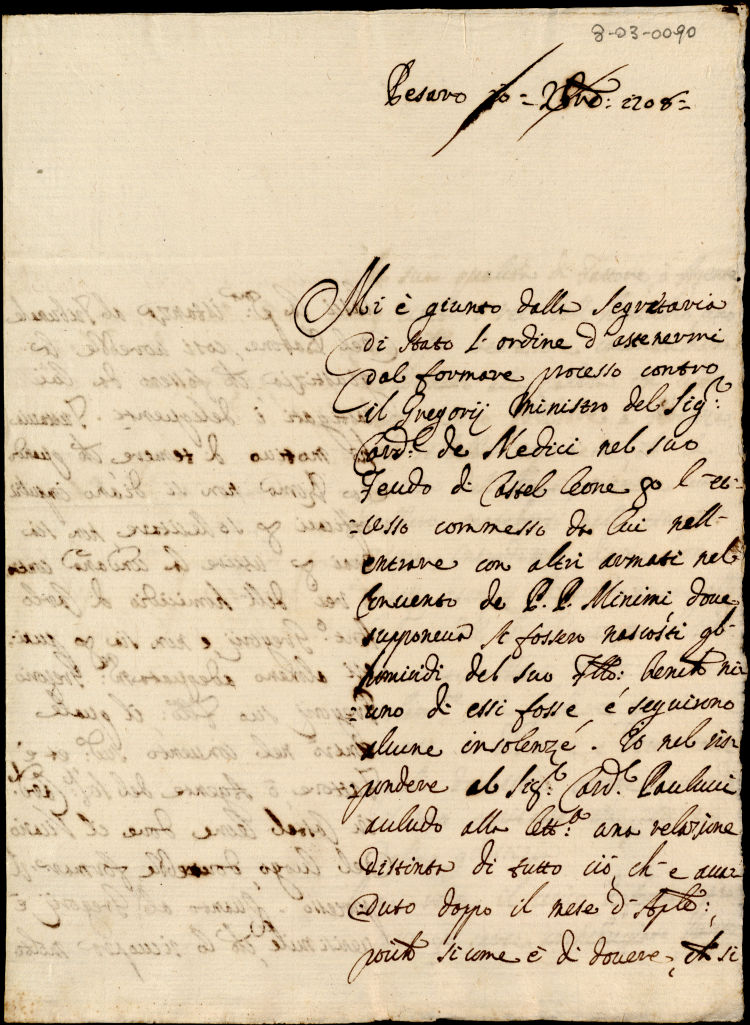 8-03-0090
Pesaro 10 = Xbre: 1708 =
Mi è giunto dalla Segretaria
di Stato l'ordine d'astenermi
dal formare processo contro
il Gregorij Ministro del Sig.r
Card.l de Medici nel suo
Feudo di Castel Leone per l'ec-
=cesso commesso da lui nell'
entrare con altri armati nel
Convento de P. P. Minimi, dove
supponeva si fossero nascosti gl'
homicidi del suo Fllo: benche niu
uno di essi fosse, é seguirono
alcune insolenze. Io nel ris-
pondere al Sig.r Card.l Paulucci
accludo alla lett.a una relazione
distinta di tutto ciò, ch'è acca-
duto doppo il mese d'Aple:,
poiche si come è di dovere, che si